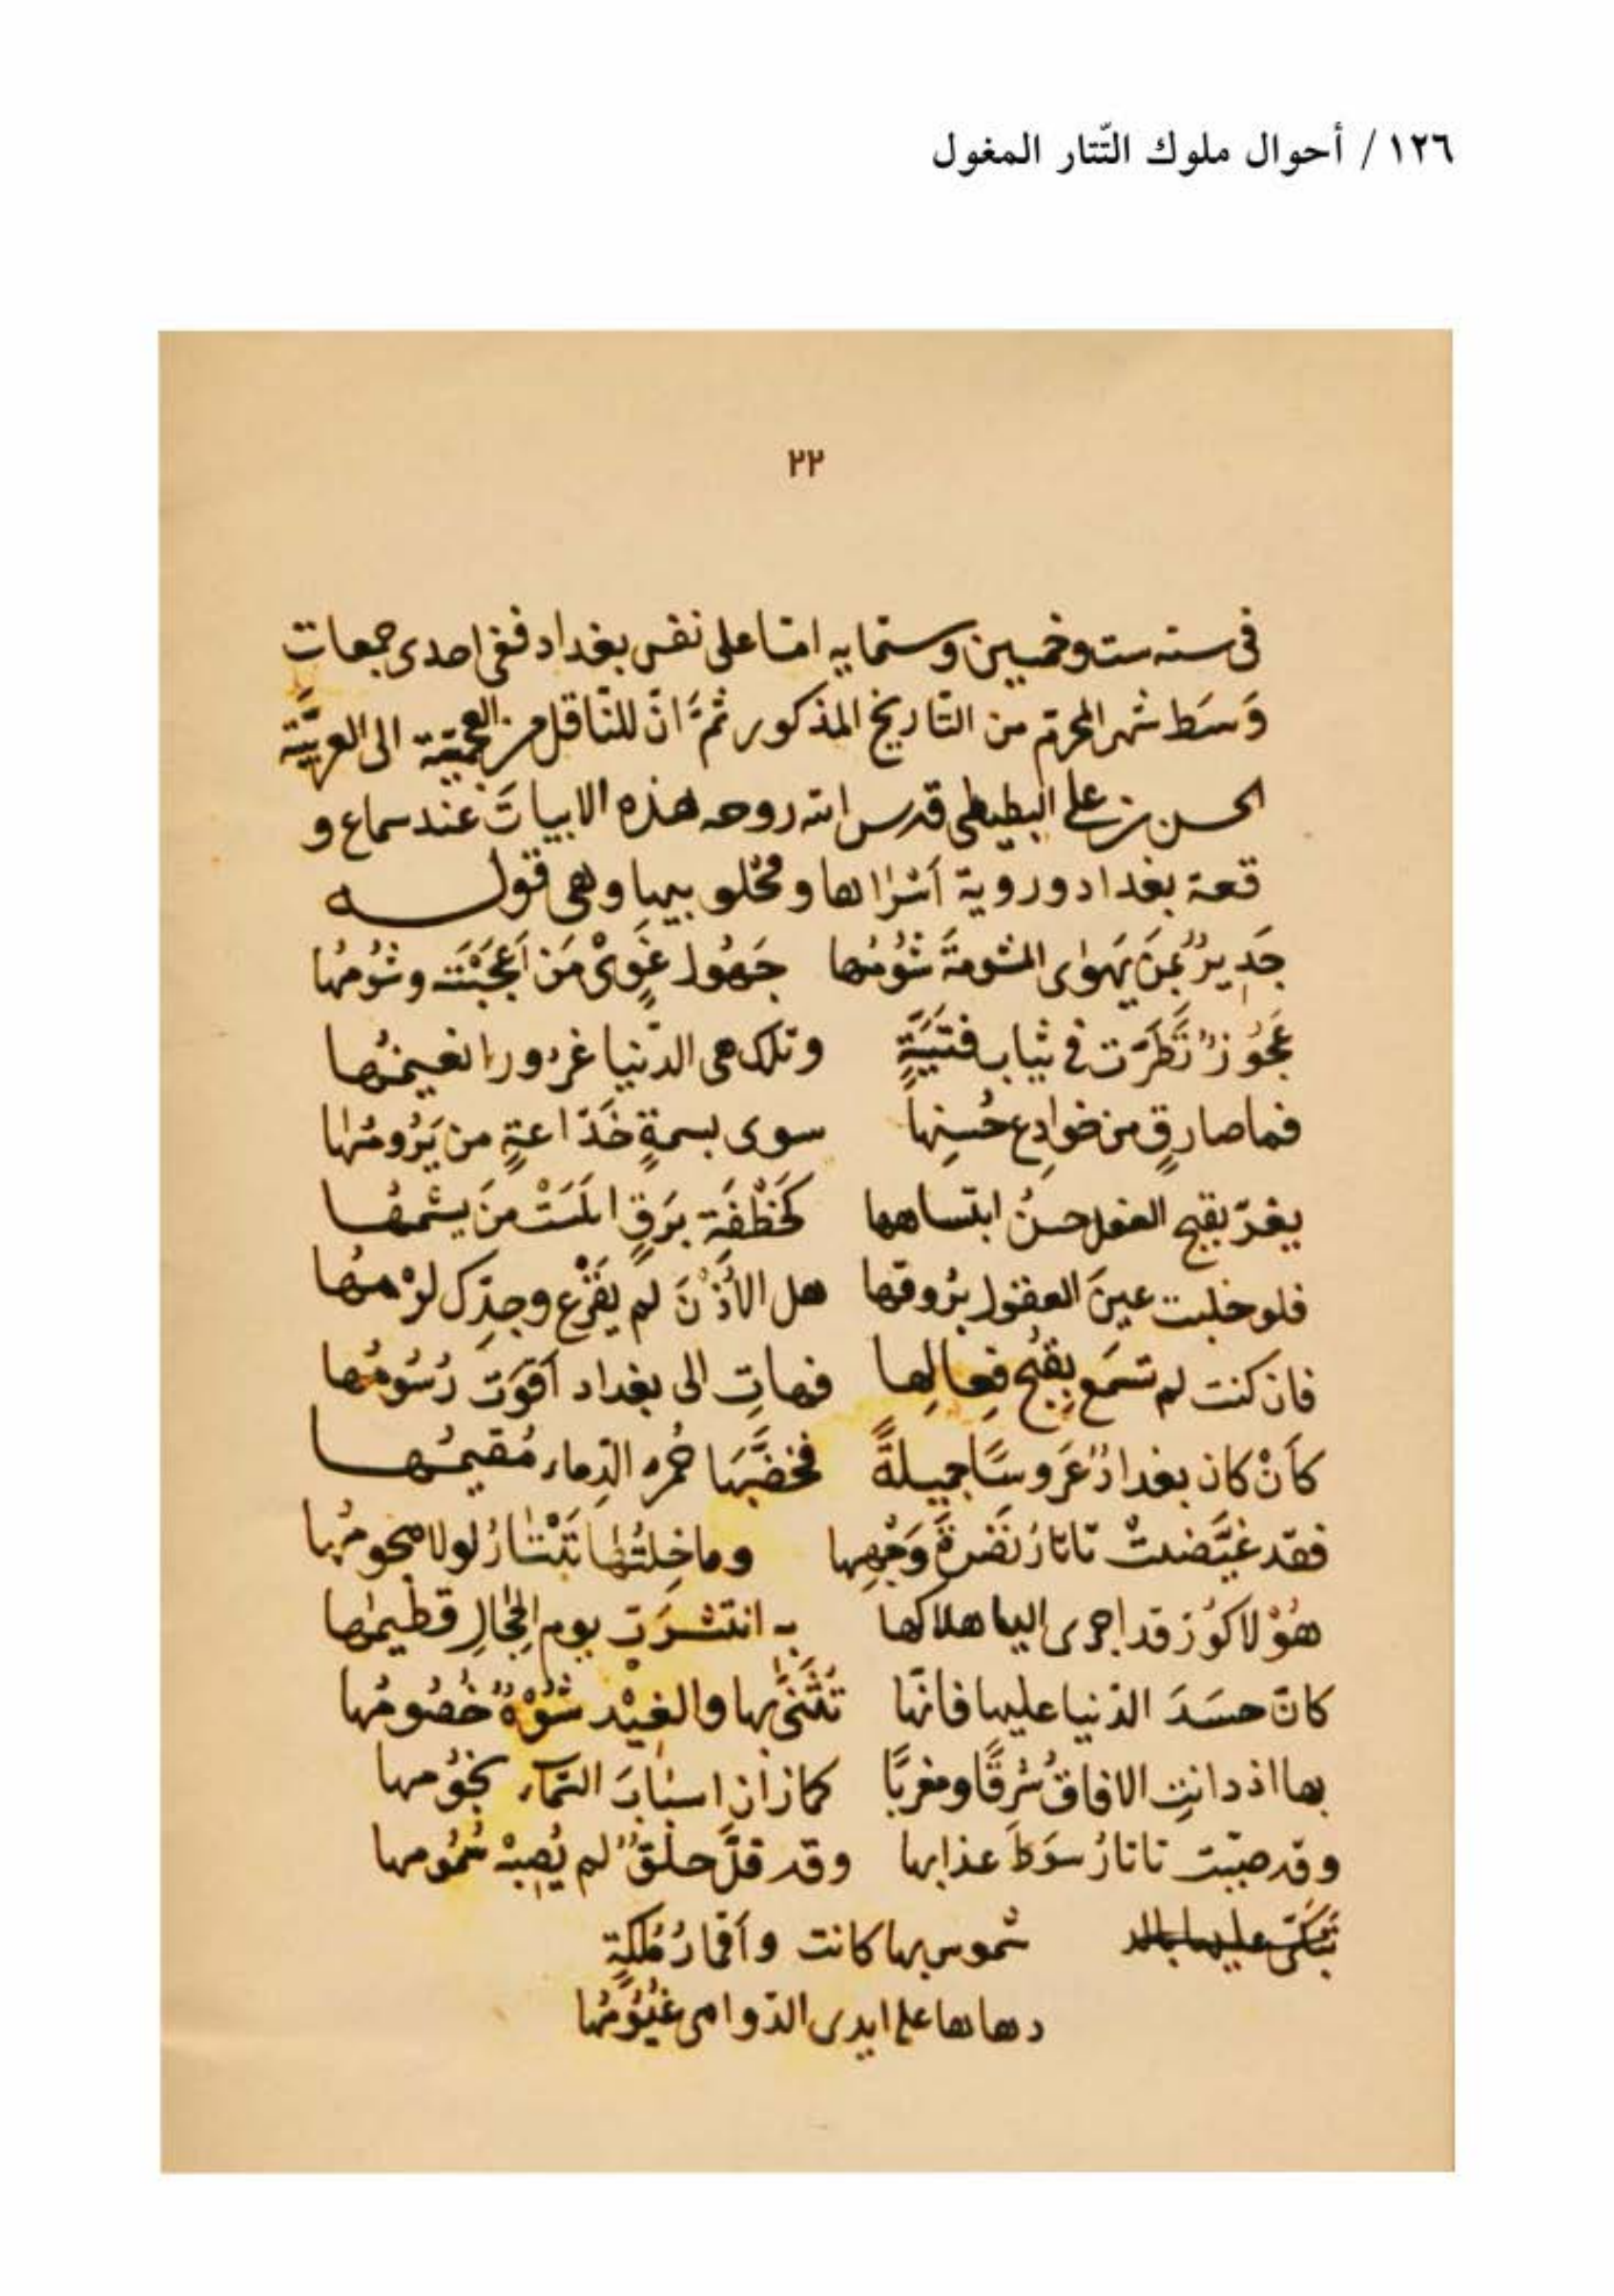 ١٢٦ / أحوال ملوك التّتار المغول
٢٢
فى سنه ست وخمسين وستمايه امّا على نفس بغداد ففى احدى جمعات
وَسَط شهر المحرّم من التّاريخ المذكور ثمّ انّ للنّاقل من العجميّة الى العربيّة
الحسن بن على البطيطى قدس الله روحه هذه الابيات عند سماع و
قعة بغداد وروية أسرائها و وهى قوله
جَديرٌ بمَن يَهوى المشومة شُومُها جَهُول غَوِىٌ مَن أعجَبَته وشُومُها
عَجُوزٌ تَطَرَّت فى ثياب فتيَّةٍ وتلك هى الدّنيا غرورا نعيمُها
فما صادقٍ من خوادِع حُسنِها سوى بسمةٍ خَدّاعةٍ من يَرُومُها
يغرّ بقبح الفعل حسنُ ابتسامها كخَطْفَة بَرقٍ من يشمها
فلو خلبت عينَ العقول بُرُوقها هل الأُذْنَ لم يَقْرَع وجدِّك
فان كنت لم تسمَع بِقبُحِ فِعالِها فهاتِ الى بغداد أقوَت رُسُومُها
كأنْ كان بغدادٌ عَروسًا جميلةً فخضَّبَها حُمرُ الدِماء مُقيمُها
فقد غيَّضت تاتارُ نَضرةَ وَجْهِها وما خِلتُها تَتتارُ لولا
هُوْلاكوُ قد اجرى اليها هلاكها به انتشرَت يوم قطيمها
كانّ حسَدَ الدّنيا عليها فانّها بها والغيْد شُوْهٌ خُصُومُها
بها اذ دانتِ الافاقُ شرقًا ومغربًا كما زان اسبابَ السّماء نجُومها
وقد صبّبت تاتارُ سَوطَ عذابها وقد قلَّ خلقٌ لم يُصِبْه سُمُومها
شموس بها كانت وأقمارُ مُلكةٍ
دهاها على ايدى الدّواهى غُيُومُها